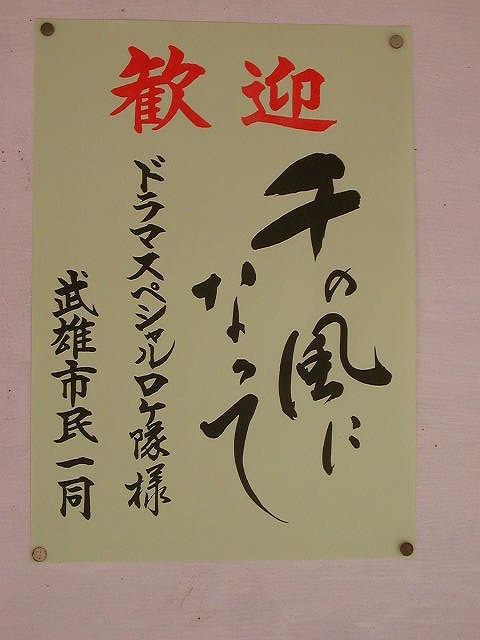 歓迎
千の風に
なって
ドラマスペシャルロケ隊様
武雄市民一同